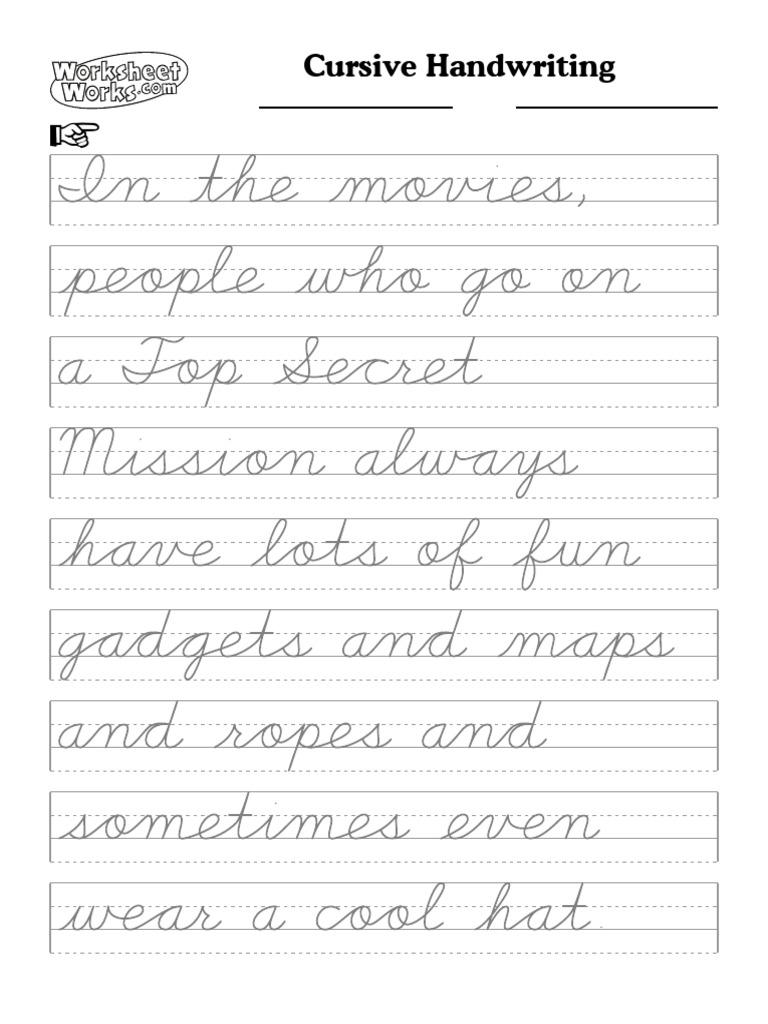 Worksheet
Works.com
Cursive Handwriting
In the movies,
people who go on
a Top Secret
Mission always
have lots of fun
gadgets and maps
and ropes and
sometimes even
wear a cool hat.